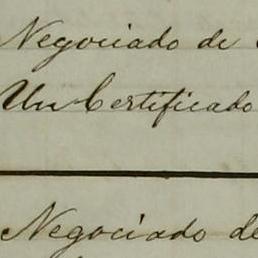 Negociado de
Un Certificado
Negociado de